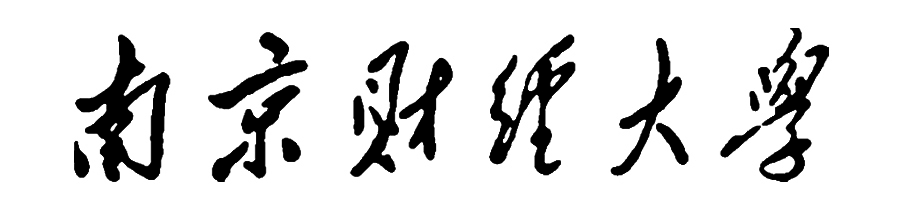 南京财经大學